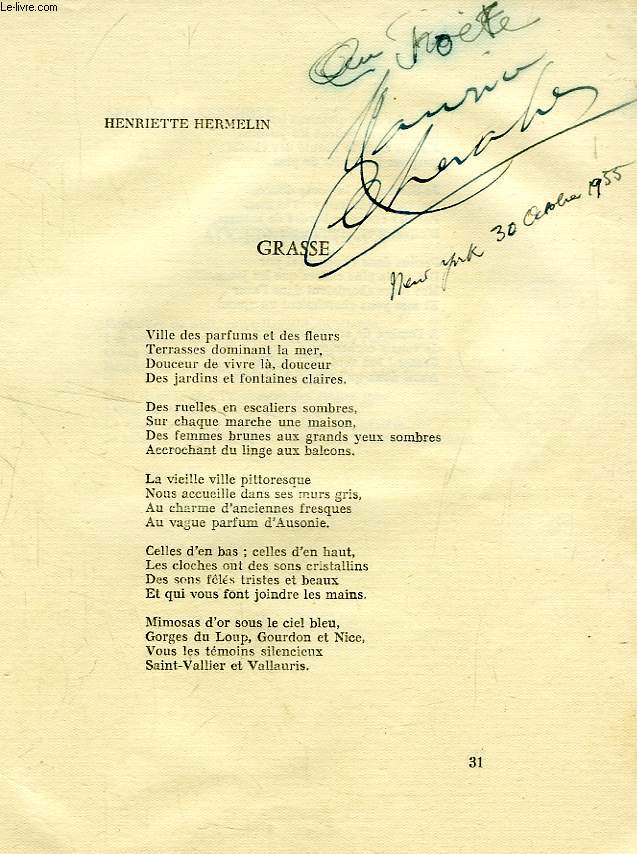 Le-livre.com
Au Poète
Maurice
New York 30 Octobre 1955
HENRIETTE HERMELIN
GRASSE
Ville des parfums et des fleurs
Terrasses dominant la mer,
Douceur de vivre là, douceur
Des jardins et fontaines claires.
Des ruelles en escaliers sombres,
Sur chaque marche une maison,
Des femmes brunes aux grands yeux sombres
Accrochant du linge aux balcons.
La vieille ville pittoresque
Nous accueille dans ses murs gris,
Au charme d'anciennes fresques
Au vague parfum d'Ausonie.
Celles d'en bas ; celles d'en haut,
Les cloches ont des sons cristallins
Des sons fêlés tristes et beaux
Et qui vous font joindre les mains.
Mimosas d'or sous le ciel bleu,
Gorges du Loup, Gourdon et Nice,
Vous les témoins silencieux
Saint-Vallier et Vallauris.
31